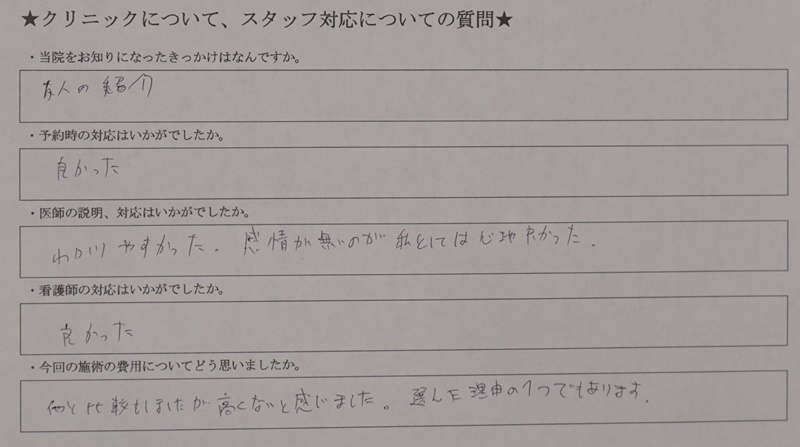 ★クリニックについて、スタッフ対応についての質問★
・当院をお知りになったきっかけはなんですか。
友人の紹介
・予約時の対応はいかがでしたか。
良かった
・医師の説明、対応はいかがでしたか。
わかりやすかった. 感情が無いのが私としては心地よかった.
・看護師の対応はいかがでしたか。
良かった
・今回の施術の費用についてどう思いましたか。
他と比較もしましたが高くないと感じました。選んだ理由の1つでもあります.